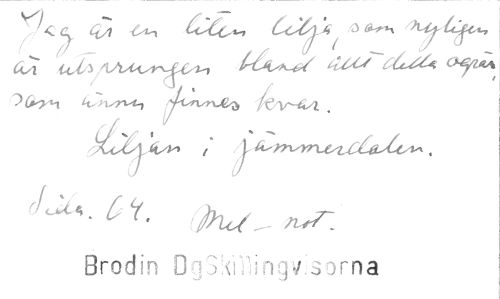 Jag är en liten lilja, som nyligen
är utsprungen bland allt detta ogräs,
som ännu finnes kvar.
Liljan i jämmerdalen.
Sida. 64. Mel - not.
Brodin DgSkillingvisorna